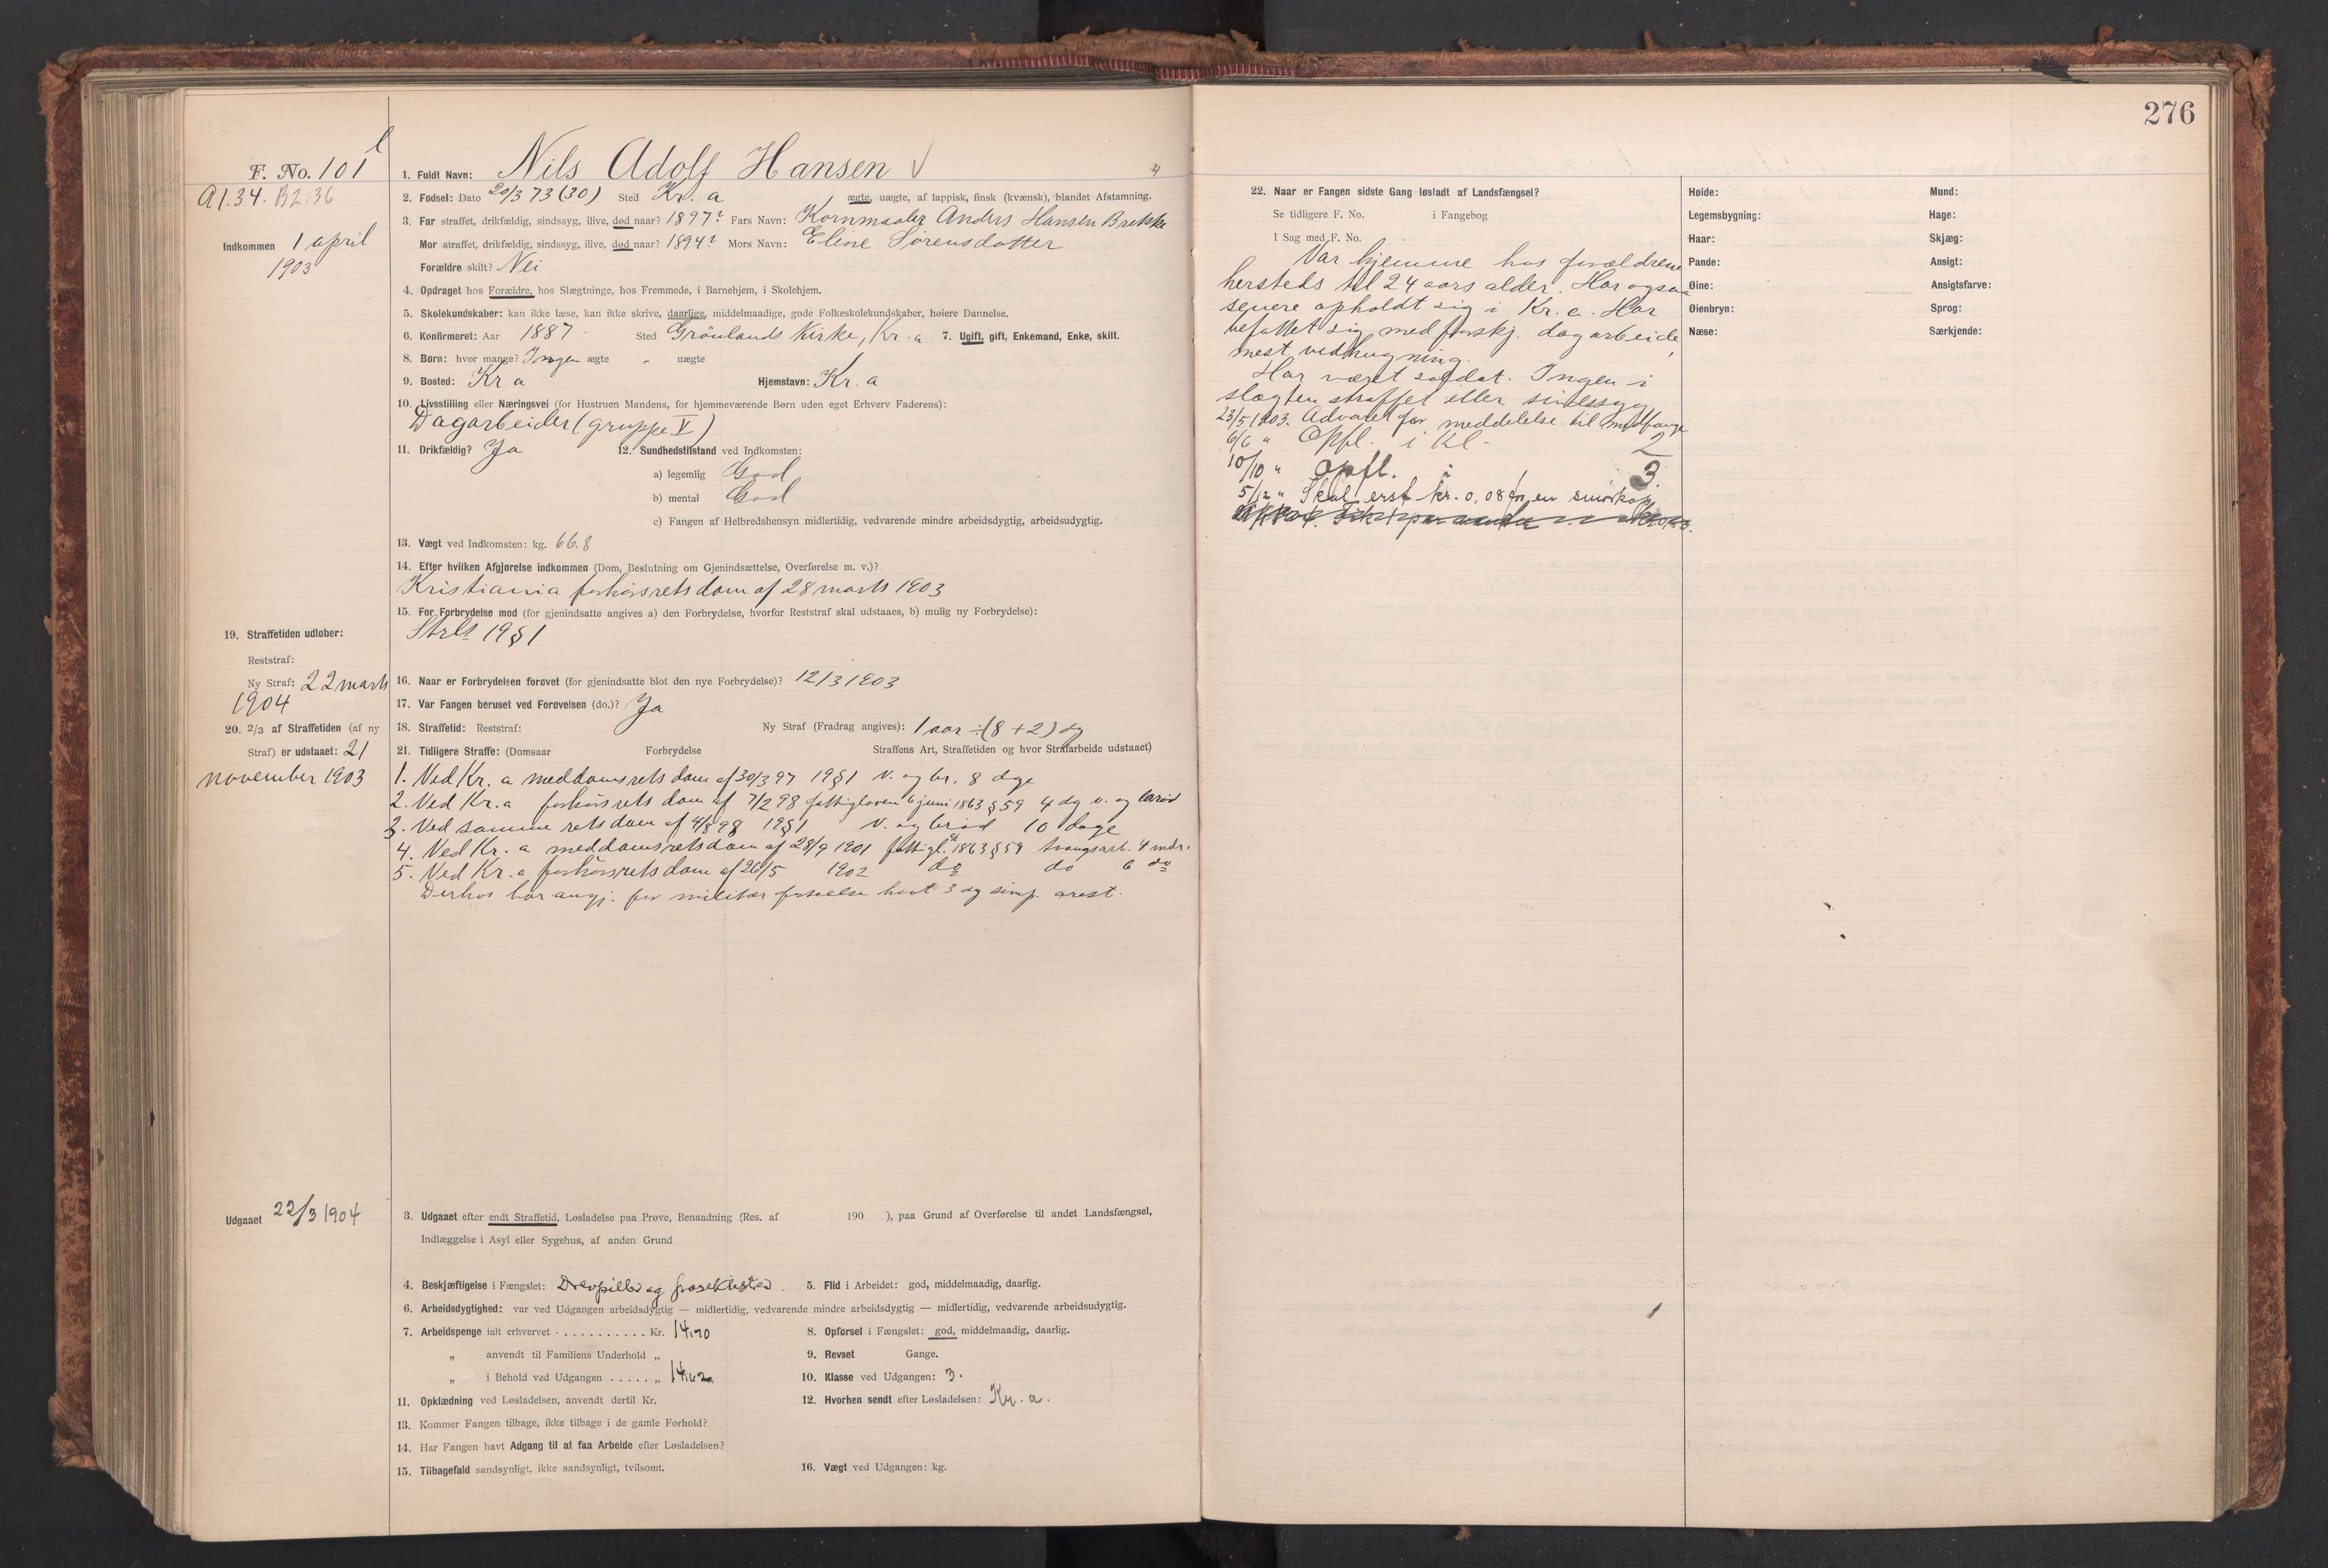 276
F. No. 101
A1.34. B2.36
Indkommen 1 april
1903
1. Fuldt Navn: Nils Adolf Hansen
2. Fødsel: Dato 20/3 73 (30) Sted Kr. a ægte, uægte, af lappisk, finsk (kvænsk), blandet Afstamning.
3. Far straffet, drikfældig, sindssyg, ilive, død naar? 1897? Fars Navn: Kornmaaler Anders Hansen Brekke
Mor straffet, drikfældig, sindssyg, ilive, død naar? 1894? Mors Navn: Eline Sørensdatter
Forældre skilt? Nei
4. Opdraget hos Forældre, hos Slægtninge, hos Fremmede, i Barnehjem, i Skolehjem.
5. Skolekundskaber: kan ikke læse, kan ikke skrive, daarlige, middelmaadige, gode Folkeskolekundskaber, høiere Dannelse.
6. Konfirmeret: Aar 1887 Sted Grønlands Kirke, Kr. a 7. Ugift, gift, Enkemand, Enke, skilt.
8. Børn: hvor mange? Ingen ægte „ uægte
9. Bosted: Kr. a Hjemstavn: Kr. a
10. Livsstilling eller Næringsvei (for Hustruen Mandens, for hjemmeværende Børn uden eget Erhverv Faderens):
Dagarbeider (gruppe V)
11. Drikfældig? Ja 12. Sundhedstilstand ved Indkomsten:
a) legemlig God
b) mental God
c) Fangen af Helbredshensyn midlertidig, vedvarende mindre arbeidsdygtig, arbeidsudygtig.
13. Vægt ved Indkomsten: kg. 66.8
14. Efter hvilken Afgjørelse indkommen (Dom, Beslutning om Gjenindsættelse, Overførelse m. v.)?
Kristiania forhørsrets dom af 28 marts 1903
15. For Forbrydelse mod (for gjenindsatte angives a) den Forbrydelse, hvorfor Reststraf skal udstaaes, b) mulig ny Forbrydelse):
Strls 19 § 1
19. Straffetiden udløber:
Reststraf:
Ny Straf: 22 marts
1904
16. Naar er Forbrydelsen forøvet (for gjenindsatte blot den nye Forbrydelse)? 12/3 1903
17. Var Fangen beruset ved Forøvelsen (do.)? Ja
20. 2/3 af Straffetiden (af ny
Straf) er udstaaet: 21
november 1903
18. Straffetid: Reststraf: Ny Straf (Fradrag angives): 1 aar ÷ (8 + 2) dg
21. Tidligere Straffe: (Domsaar Forbrydelse Straffens Art, Straffetiden og hvor Strafarbeide udstaaet)
1. Ved Kr. a meddomsrets dom af 30/3 97 19 § 1 v. og br. 8 dge
2. Ved Kr. a forhørsrets dom af 7/2 98 fattigloven 6 juni 1863 § 59 4 dg v. og brød
3. Ved samme rets dom af 4/8 98 19 § 1 v. og brød 10 dage
4. Ved Kr. a meddomsrets dom af 28/9 1901 fattigl. 1863 § 59 tvangsarb. 4 mdr.
5. Ved Kr. a forhørsrets dom af 26/5 1902 do do 6 do
Derhos har angj. for militær forseelse havt 3 dg simp. arest.
Udgaaet 22/3 1904
3. Udgaaet efter endt Straffetid, Løsladelse paa Prøve, Benaadning (Res. af 190 ), paa Grund af Overførelse til andet Landsfængsel,
Indlæggelse i Asyl eller Sygehus, af anden Grund
4. Beskjæftigelse i Fængslet: Drevpilling 5. Flid i Arbeidet: god, middelmaadig, daarlig.
6. Arbeidsdygtighed: var ved Udgangen arbeidsdygtig — midlertidig, vedvarende mindre arbeidsdygtig — midlertidig, vedvarende arbeidsudygtig.
7. Arbeidspenge ialt erhvervet . . . . . . . . . . . Kr. 14.70 8. Opførsel i Fængslet: god, middelmaadig, daarlig.
„ anvendt til Familiens Underhold „ 9. Revset Gange.
„ i Behold ved Udgangen . . . . . „ 14.62 10. Klasse ved Udgangen: 3.
11. Opklædning ved Løsladelsen, anvendt dertil Kr. 12. Hvorhen sendt efter Løsladelsen: Kr. a.
13. Kommer Fangen tilbage, ikke tilbage i de gamle Forhold?
14. Har Fangen havt Adgang til at faa Arbeide efter Løsladelsen?
15. Tilbagefald sandsynligt, ikke sandsynligt, tvilsomt. 16. Vægt ved Udgangen: kg.
22. Naar er Fangen sidste Gang løsladt af Landsfængsel?
Se tidligere F. No. i Fangebog
I Sag med F. No.
Var hjemme hos forældrene
hersteds til 24 aars alder. Har ogsaa
senere opholdt sig i Kr. a. Har
befattet sig med forskj. dagarbeide,
mest vedhugning.
Har været soldat. Ingen i
slægten straffet eller sindssyg
23/5 1903. Advaret for meddelelse til medfange
6/6 „ Opfl. i Kl. 2
10/10 „ opfl. i 3.
5/12 „ Skal erst. kr. 0,08 for en smørkop
Høide: Mund:
Legemsbygning: Hage:
Haar: Skjæg:
Pande: Ansigt:
Øine: Ansigtsfarve:
Øienbryn: Sprog:
Næse: Særkjende: